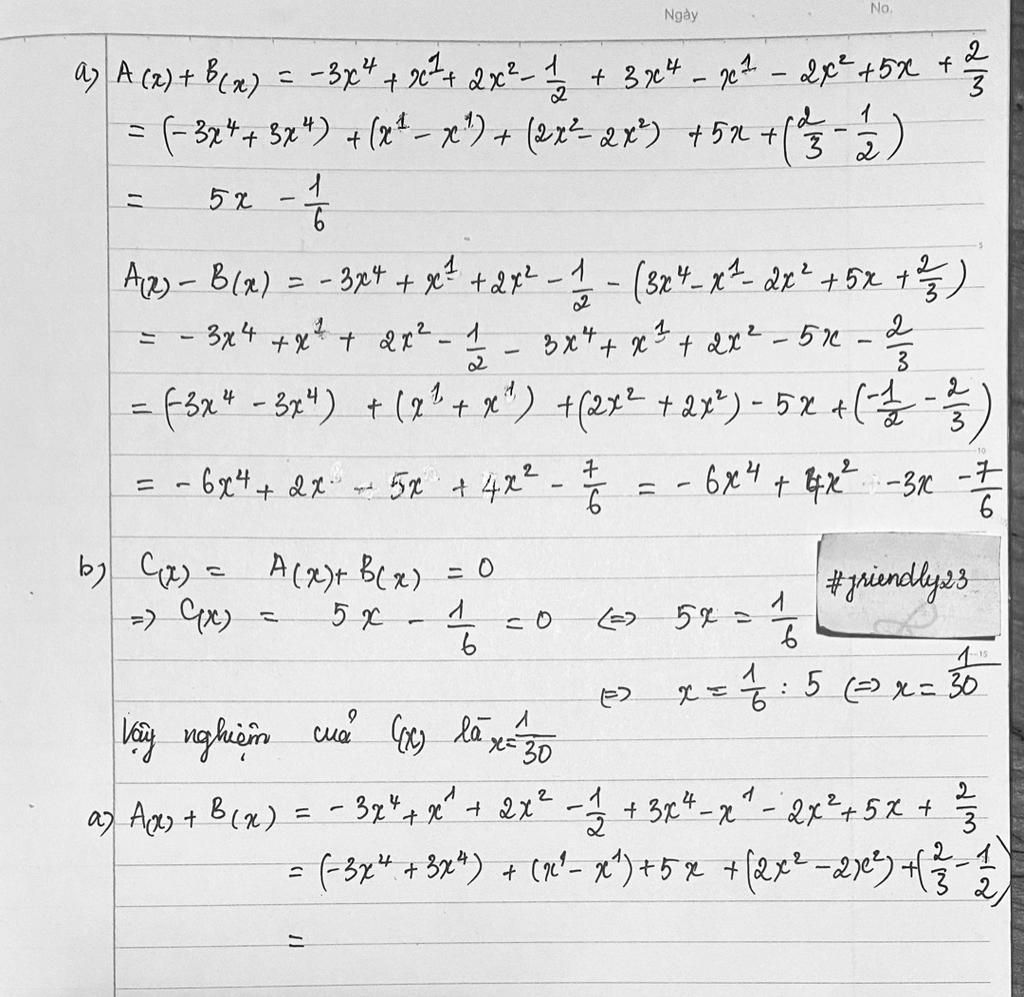 Ngày No.
a) A(x) + B(x) = -3x⁴ + x¹ + 2x² - 1/2 + 3x⁴ - x¹ - 2x² + 5x + 2/3
= (-3x⁴ + 3x⁴) + (x¹ - x¹) + (2x² - 2x²) + 5x + (2/3 - 1/2)
= 5x - 1/6
A(x) - B(x) = -3x⁴ + x¹ + 2x² - 1/2 - (3x⁴ - x¹ - 2x² + 5x + 2/3)
= -3x⁴ + x¹ + 2x² - 1/2 - 3x⁴ + x¹ + 2x² - 5x - 2/3
= (-3x⁴ - 3x⁴) + (x¹ + x¹) + (2x² + 2x²) - 5x + (-1/2 - 2/3)
= -6x⁴ + 2x - 5x + 4x² - 7/6 = -6x⁴ + 4x² - 3x - 7/6
b) C(x) = A(x) + B(x) = 0
#friendly23
=> C(x) = 5x - 1/6 = 0 <=> 5x = 1/6
<=> x = 1/6 : 5 <=> x = 1/30
Vậy nghiệm của C(x) là x = 1/30
a) A(x) + B(x) = -3x⁴ + x¹ + 2x² - 1/2 + 3x⁴ - x¹ - 2x² + 5x + 2/3
= (-3x⁴ + 3x⁴) + (x¹ - x¹) + 5x + (2x² - 2x²) + (2/3 - 1/2)
=